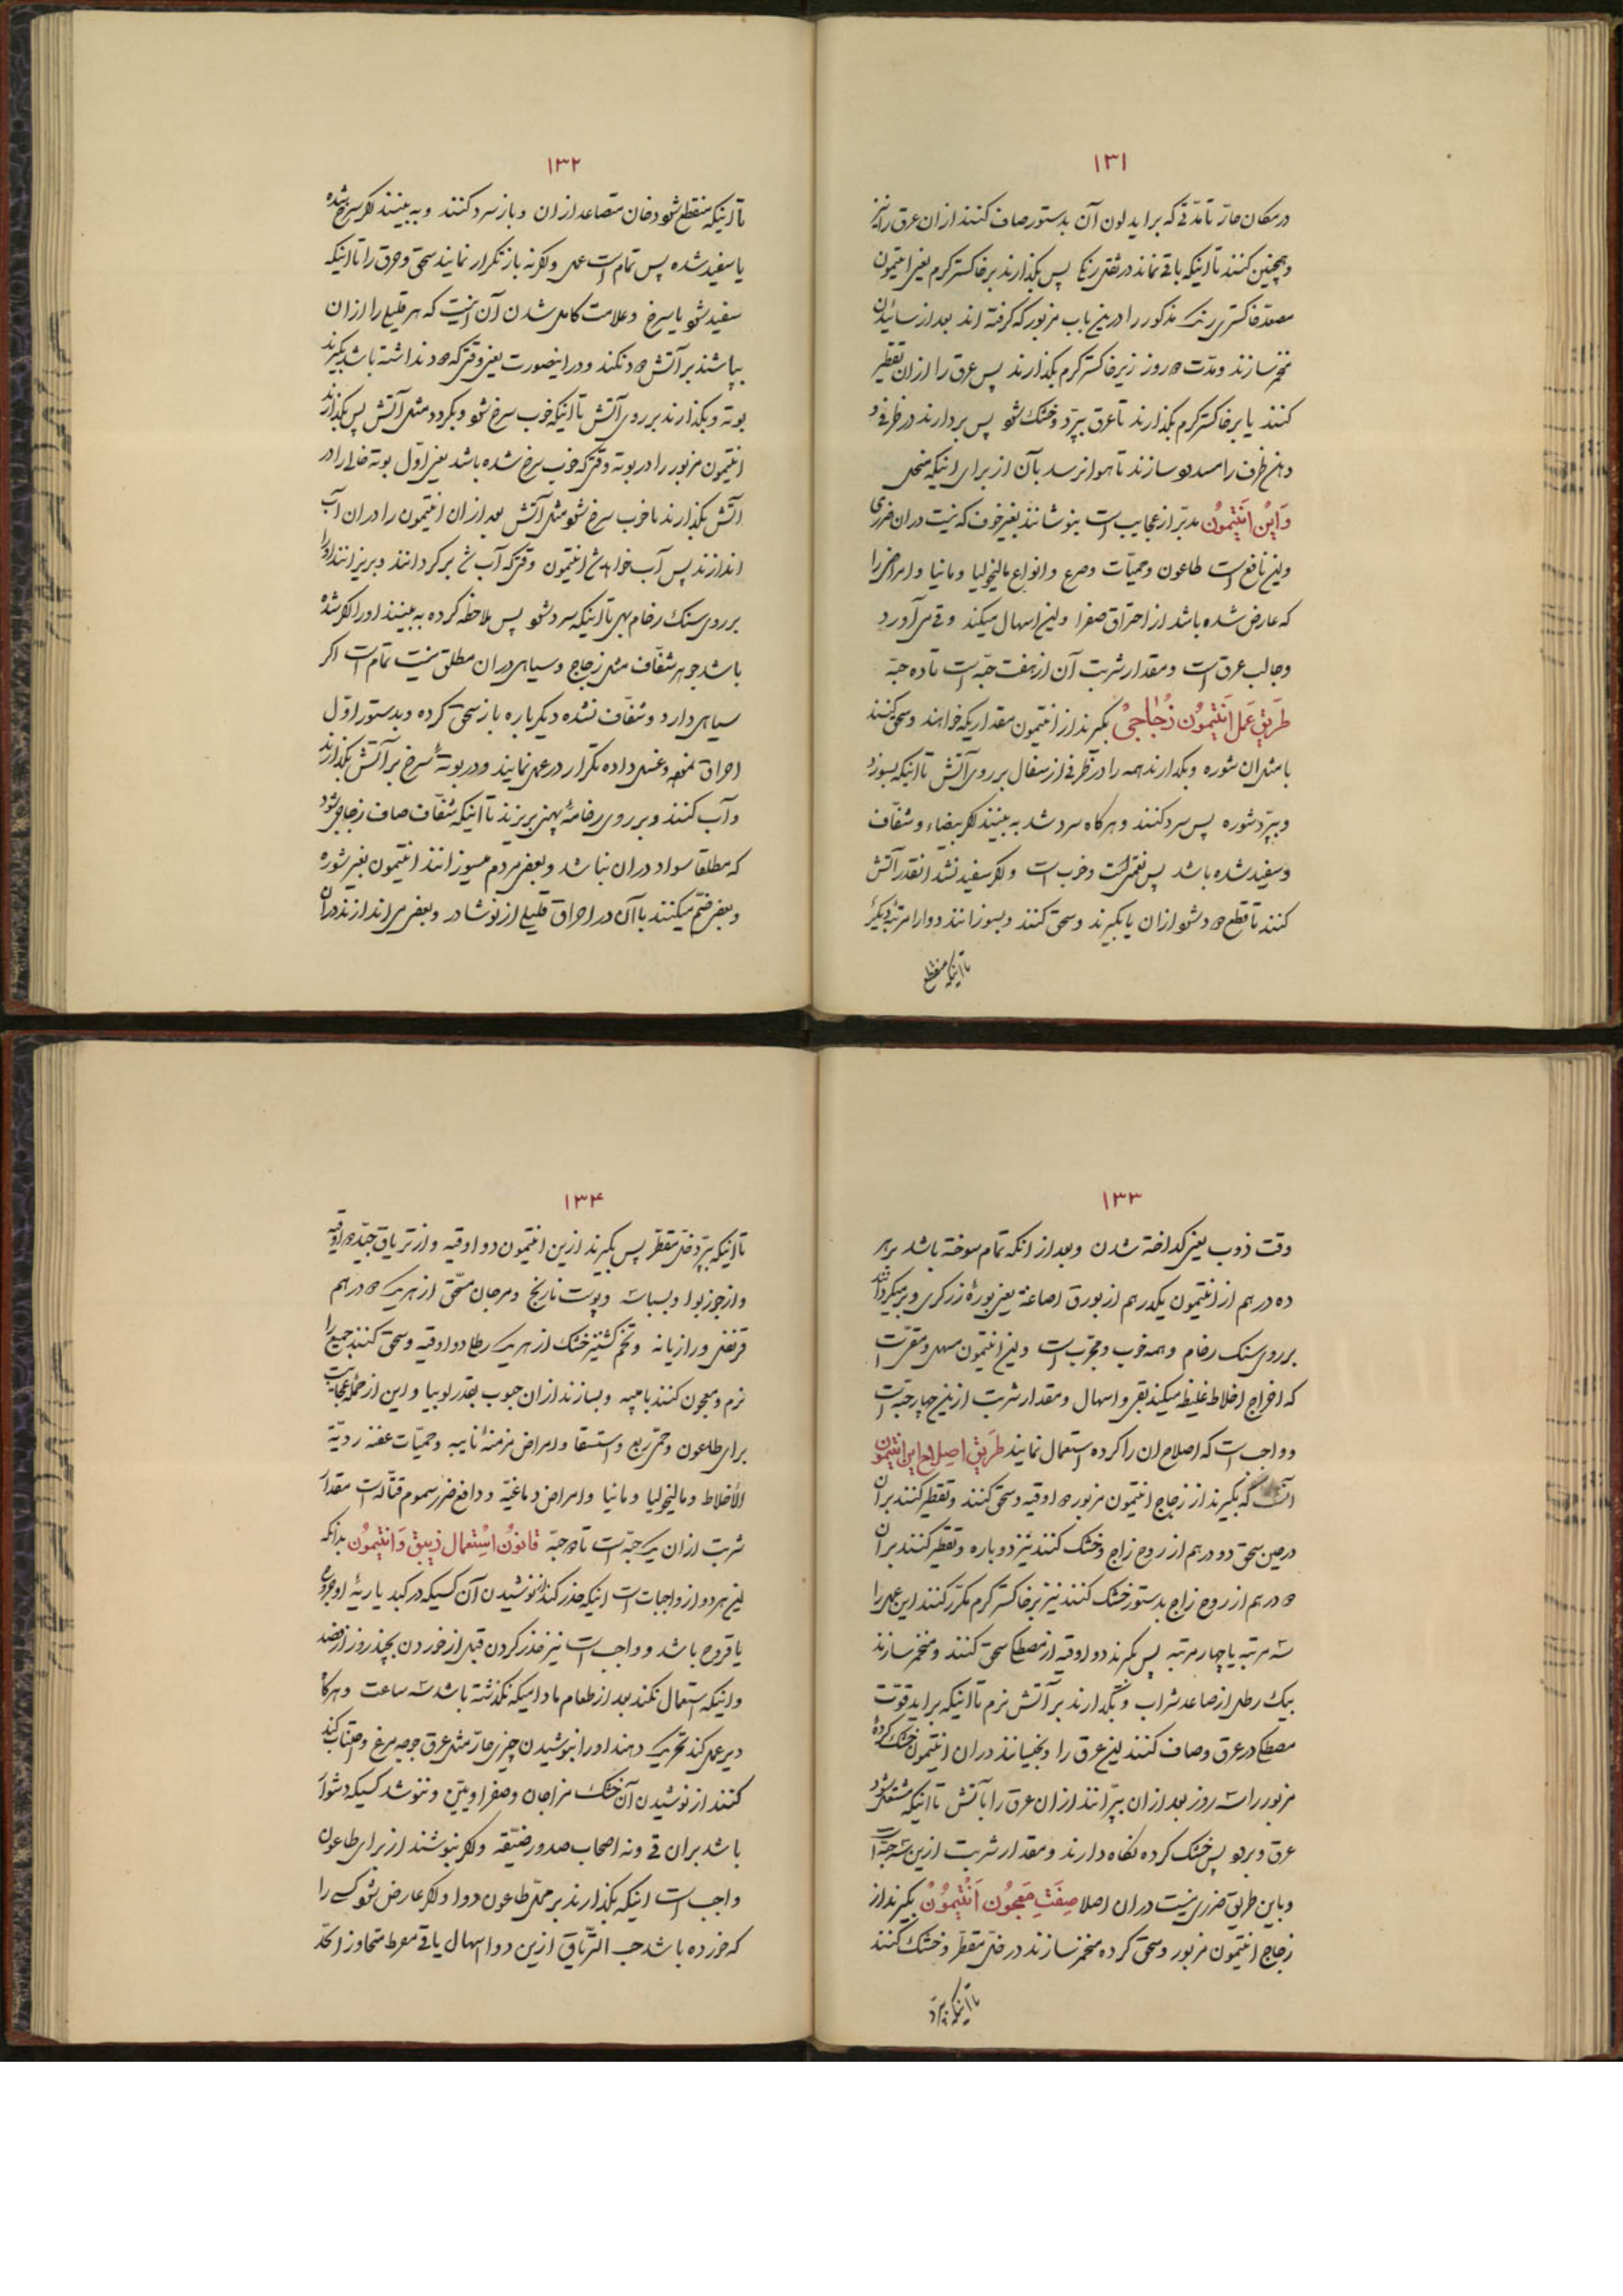 ۱۳۱
در مکان حارّ تا مدّتی که براید لون آن بدستور صاف کنند ازان عرق را نیز
وهمچنین کنند تا اینکه باقی نماند در ثقل رنکی پس بکذارند بر خاکستر کرم یعنی انتیمون
مصعّد خاکستری رنک مذکور را درین باب مزبور که کرفته اند بعد از سائیدن
مخمّر سازند ومدّت ۵ روز زیر خاکستر کرم بکذارند پس عرق را ازان تقطیر
کنند یا بر خاکستر کرم بکذارند تا عرق بپرّد وخشک شو پس بردارند در ظرفی و
دهن ظرف را مسدود سازند تا هوا نرسد بآن از برای اینکه منحل
وَاین اَنتیمُون مدبّر از عجایب است بنوشانند بغیر خوف که نیست دران ضرری
واین نافع است طاعون وحمیّات وصرع وانواع مالیخولیا ومانیا وامراض را
که عارض شده باشد از احتراق صفرا واین اسهال میکند وقی می آورد
وجالب عرق است ومقدار شربت آن از هفت حبّه است تا ده حبّه
طَریق عَمل اَنتیمُون زُجاجی بکیرند از انتیمون مقداریکه خواهند وسحق کنند
با مثل ان شوره وبکذارند همه را در ظرفی از سفال بر روی آتش تا اینکه بسوزد
وبپرّد شوره پس سرد کنند وهرکاه سرد شد به بینند اکر بیضاء وشفّاف
وسفید شده باشد پس نعم است وخوب است واکر سفید نشد انقدر آتش
کنند تا قطع دود شو ازان یا بکیرند وسحق کنند وبسوزانند دوا را مرتبه دیکر
تا اینکه منقطع
۱۳۲
تا اینکه منقطع شود دخان متصاعد ازان وباز سرد کنند وبه بینند اکر سرخ شده
یا سفید شده پس تمام است عمل واکرنه باز تکرار نمایند سحق وحرق را تا اینکه
سفید شو یا سرخ وعلامت کامل شدن آن اینست که هر قلیلی را ازان
بپاشند بر آتش دود نکند ودر اینصورت یعنی وقتی که دود نداشته باشد بکیرند
بوته وبکذارند بر روی آتش تا اینکه خوب سرخ شو وبکردد مثل آتش پس بکذارند
انتیمون مزبور را در بوته وقتی که خوب سرخ شده باشد یعنی اوّل بوته خالی را در
اتش بکذارند تا خوب سرخ شو مثل آتش بعد ازان انتیمون را دران آب
اندازند پس آب خواهد شد انتیمون وقتی که آب شد برکردانند وبریزانند او را
بر روی سنک رخام پهن تا اینکه سرد شو پس ملاحظه کرده به بینند او را اکر شده
باشد جوهر شفّاف مثل زجاج وسیاهی دران مطلق نیست تمام است اکر
سیاهی دارد وشفّاف نشده دیکرباره باز سحق کرده وبدستور اوّل
احراق نموده وغسل داده تکرار در عمل نمایند ودر بوتهٔ سرخ بر آتش بکذارند
وآب کنند وبر روی رخامهٔ پهنی بریزند تا اینکه شفّاف صاف زجاجی شود
که مطلقا سواد دران نباشد وبعض مردم میسوزانند انتیمون بغیر شوره
وبعض ضمّ میکنند باآن در احراق قلیلی از نوشادر وبعض می اندازند دران
۱۳۳
وقت ذوب یعنی کداخته شدن وبعد از انکه تمام سوخته باشد بر هر
ده درهم از انتیمون یکدرهم از بورق الصاغة یعنی بورهٔ زرکری وبرمیکردانند
بر روی سنک رخام وهمه خوب ومجرّب است واین انتیمون مسهل ومقی است
که اخراج اخلاط غلیظ میکند بقی واسهال ومقدار شربت ازین چهار حبّه است
وواجب است که اصلاح ان را کرده استعمال نمایند طَریق اِصلاح این انتیمون
انست که بکیرند از زجاج انتیمون مزبور ۵ اوقیه وسحق کنند وتقطیر کنند بران
در حین سحق دو درهم از روح زاج وخشک کنند نیز دوباره وتقطیر کنند بران
۵ درهم از روح زاج بدستور خشک کنند نیز بر خاکستر کرم مکرّر کنند این عمل را
سه مرتبه یا چهار مرتبه پس بکیرند دو اوقیه از مصطکی سحق کنند ومخمر سازند
بیک رطل از صاعد شراب وبکذارند بر آتش نرم تا اینکه براید قوّت
مصطکی در عرق وصاف کنند این عرق را وبخیسانند دران انتیمون خشک کردهٔ
مزبور را سه روز بعد ازان بپرّانند ازان عرق را باآتش تا اینکه مشتعل شود
عرق وبرود پس خشک کرده نکاه دارند ومقدار شربت ازین سه حبّه است
وباین طریق ضرری نیست دران اصلا صِفَت مَعجُون اَنتیمُون بکیرند از
زجاج انتیمون مزبور وسحق کرده مخمر سازند در خلّ مقطّر وخشک کنند
تا اینکه بپرّد
۱۳۴
تا اینکه بپرّد خلّ مقطّر پس بکیرند ازین انتیمون دو اوقیه واز تریاق جیّد ۵ اوقیه
واز جوزبوا وبسباسه وپوست نارنج ومرجان مسحّق از هر یک ۵ درهم
قرنفل ورازیانه وتخم کشنیز خشک از هر یک رطل دو اوقیه وسحق کنند جمیع را
نرم ومعجون کنند بامیبه وبسازند ازان حبوب بقدر لوبیا واین از جمله عجایب است
برای طاعون وحمّی ربع واستسقا وامراض مزمنهٔ نایبه وحمیّات عفنه ردیّة
الأخلاط ومالیخولیا ومانیا وامراض دماغیّه ودافع ضرر سموم قتّاله است مقدار
شربت ازان یک حبّه است تا ۵ حبّه قانُون اِستعمال زیبق وَانتیمُون بدانکه
این هر دو از واجبات است اینکه حذر کنند از نوشیدن آن کسیکه در کبد یا ریهٔ او جروح
یا قروح باشد وواجب است نیز حذر کردن قبل از خوردن بچند روز از فصد
واینکه استعمال نکند بعد از طعام مادامیکه نکذشته باشد سه ساعت وهرکاه
دیر عمل کند تحریک دهند او را بنوشیدن چیزی حارّ مثل عرق جوجه مرغ واجتناب کنند
کنند از نوشیدن آن خشک مزاجان وصفراویین وننوشد کسیکه دشوار
باشد بران قی ونه اصحاب صدور ضیّقه واکر بنوشند از برای طاعون
واجب است اینکه بکذارند بر محلّ طاعون دوا واکر عارض شو کسی را
که خورده باشد حب التریاق ازین دوا اسهال یا قی مفرط متجاوز از حدّ